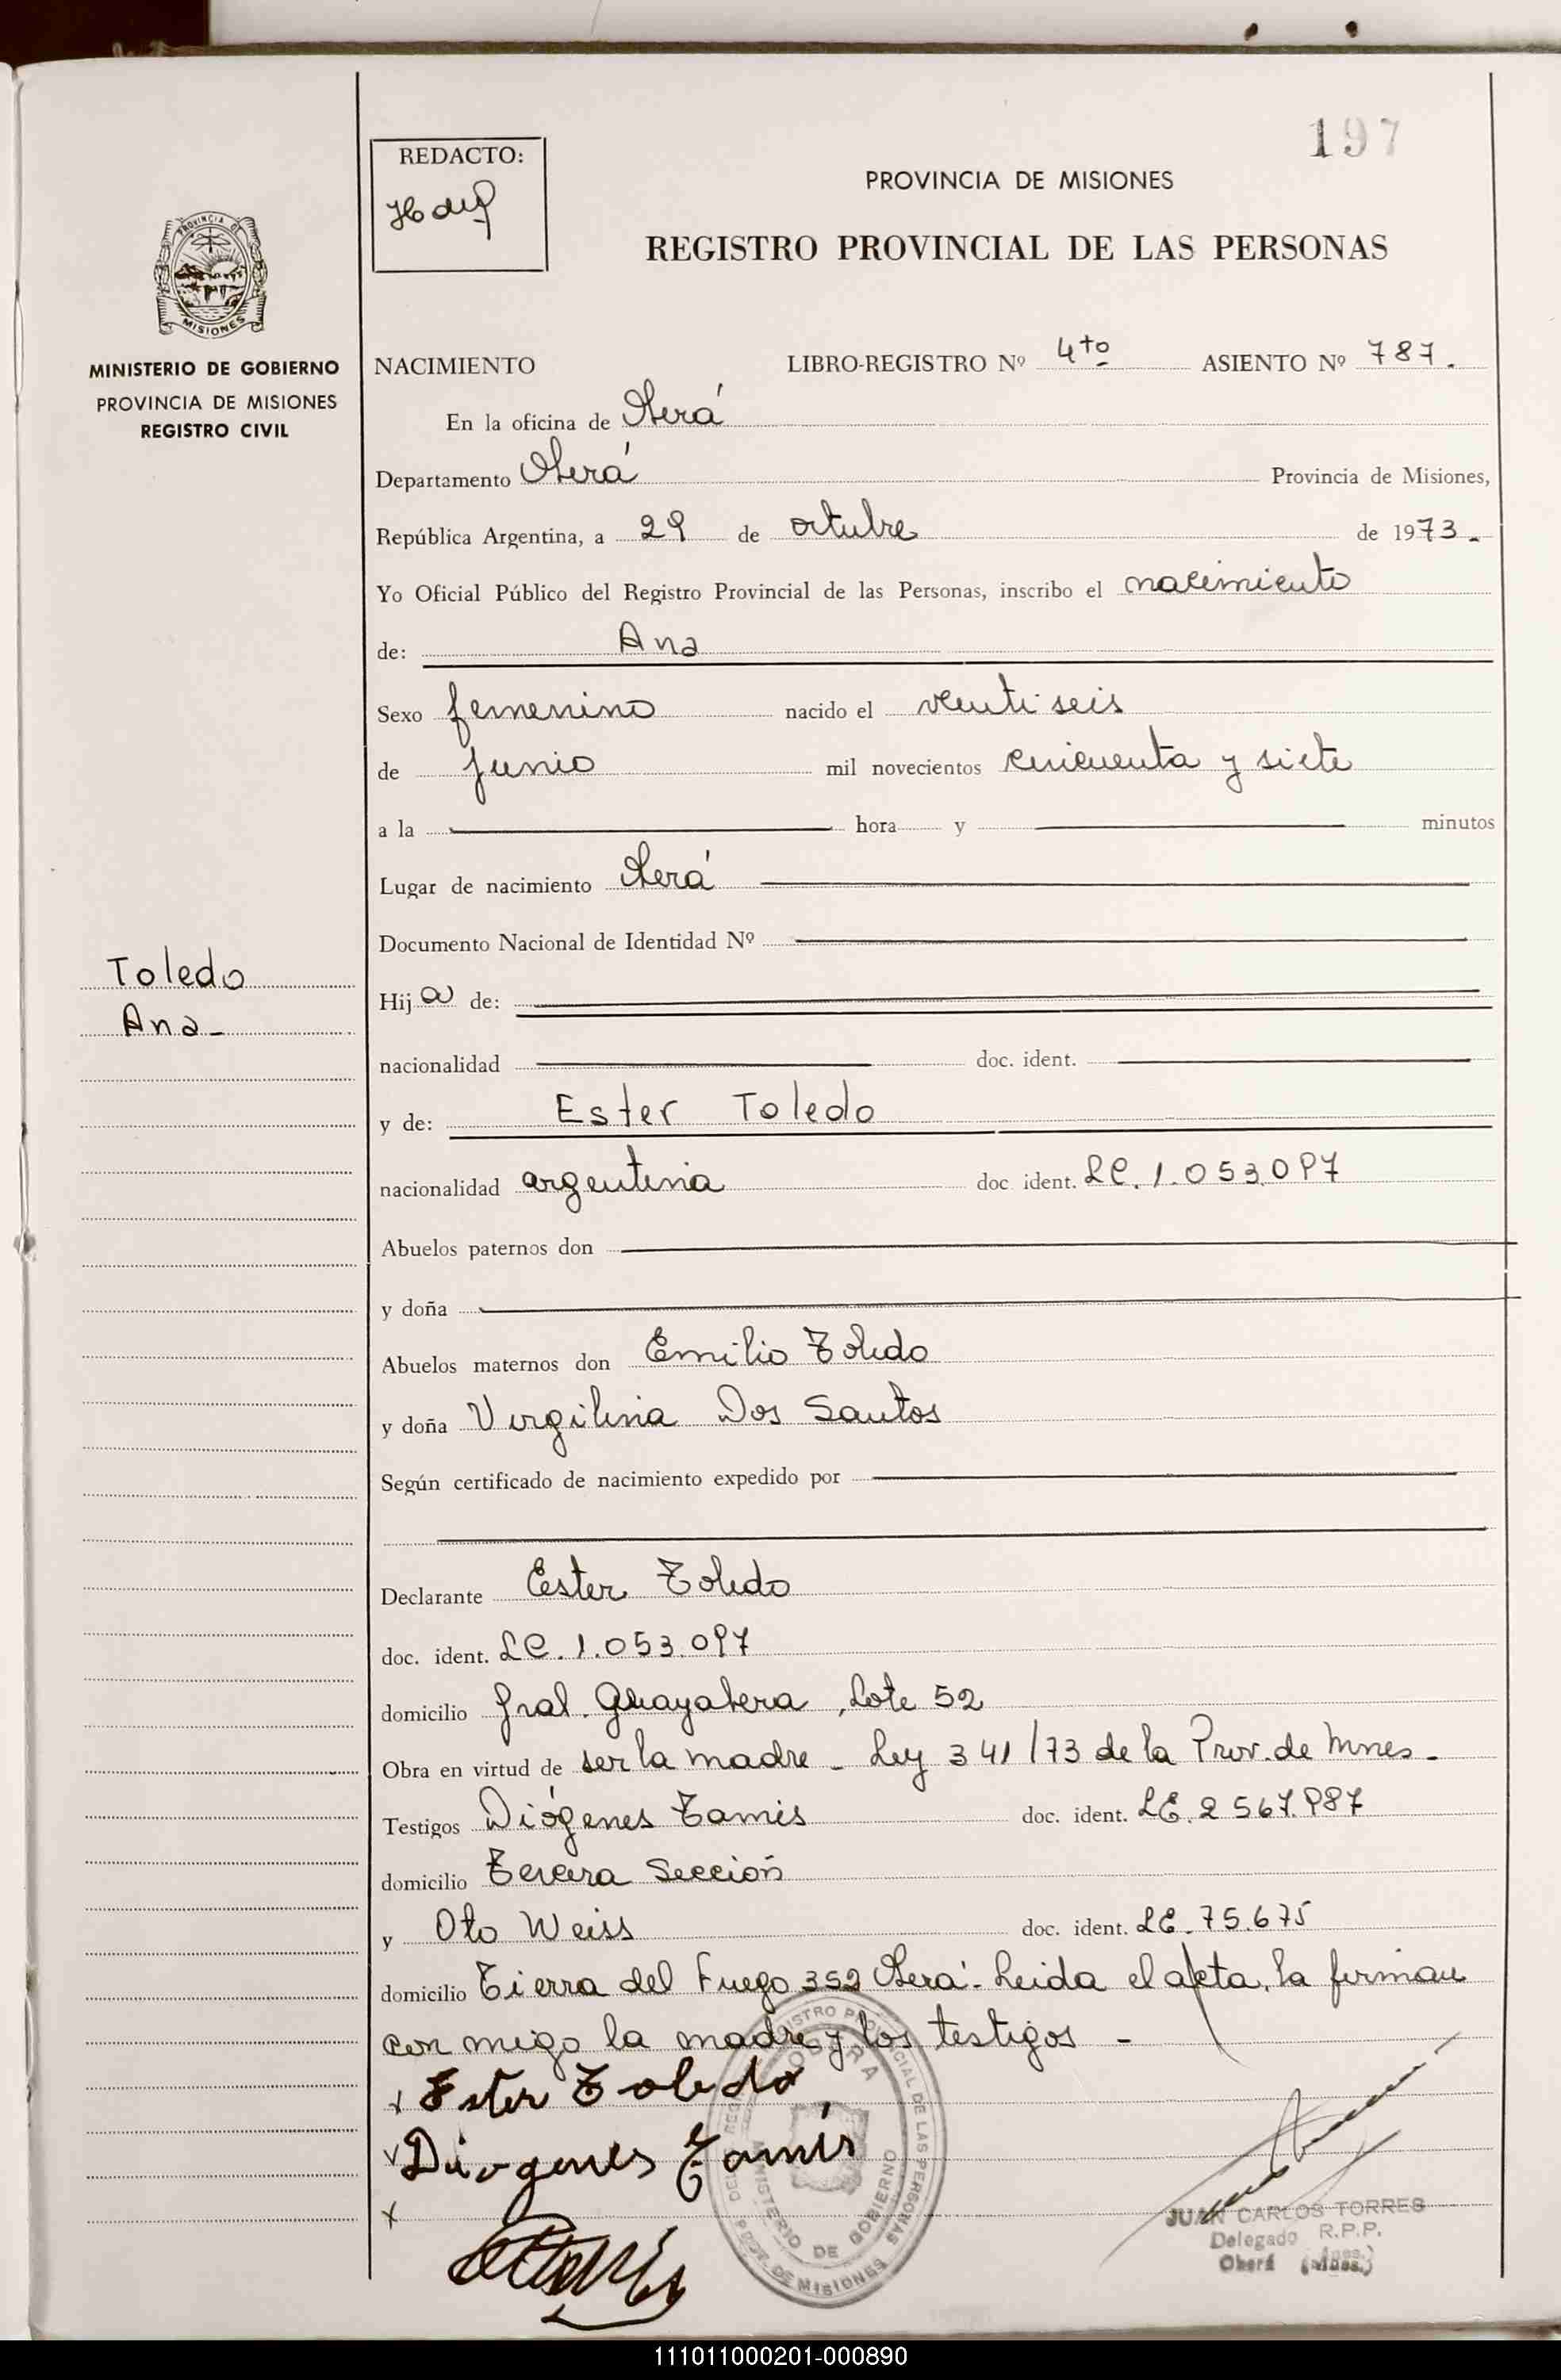 197
REDACTO:
PROVINCIA DE MISIONES
REGISTRO PROVINCIAL DE LAS PERSONAS
PROVINCIA DE
MISIONES
MINISTERIO DE GOBIERNO
PROVINCIA DE MISIONES
REGISTRO CIVIL
NACIMIENTO LIBRO-REGISTRO Nº 4to ASIENTO Nº 787.
En la oficina de Oberá
Departamento Oberá Provincia de Misiones,
República Argentina, a 29 de octubre de 1973.
Yo Oficial Público del Registro Provincial de las Personas, inscribo el nacimiento
de: Ana
Sexo femenino nacido el veintiseis
de junio mil novecientos cincuenta y siete
a la hora y minutos
Lugar de nacimiento Oberá
Documento Nacional de Identidad Nº
Toledo
Ana
Hija de:
nacionalidad doc. ident.
y de: Ester Toledo
nacionalidad argentina doc ident. LC. 1.053.097
Abuelos paternos don
y doña
Abuelos maternos don Emilio Toledo
y doña Virgilina Dos Santos
Según certificado de nacimiento expedido por
Declarante Ester Toledo
doc. ident. LC. 1.053.097
domicilio Gral. Guayabera, Lote 52
Obra en virtud de ser la madre - Ley 341/73 de la Prov. de Mnes.
Testigos Diógenes Tamis doc. ident. LE. 2 567.987
domicilio Tercera Sección
y Oto Weiss doc. ident. LE. 75.675
domicilio Tierra del Fuego 352 Oberá - Leida el acta, la firman
con migo la madre y los testigos -
x Ester Toledo
x Diogenes Tamis
x
MINISTERIO DE GOBIERNO
JUAN CARLOS TORRES
Delegado R.P.P.
Oberá (Mnes.)
111011000201-000890